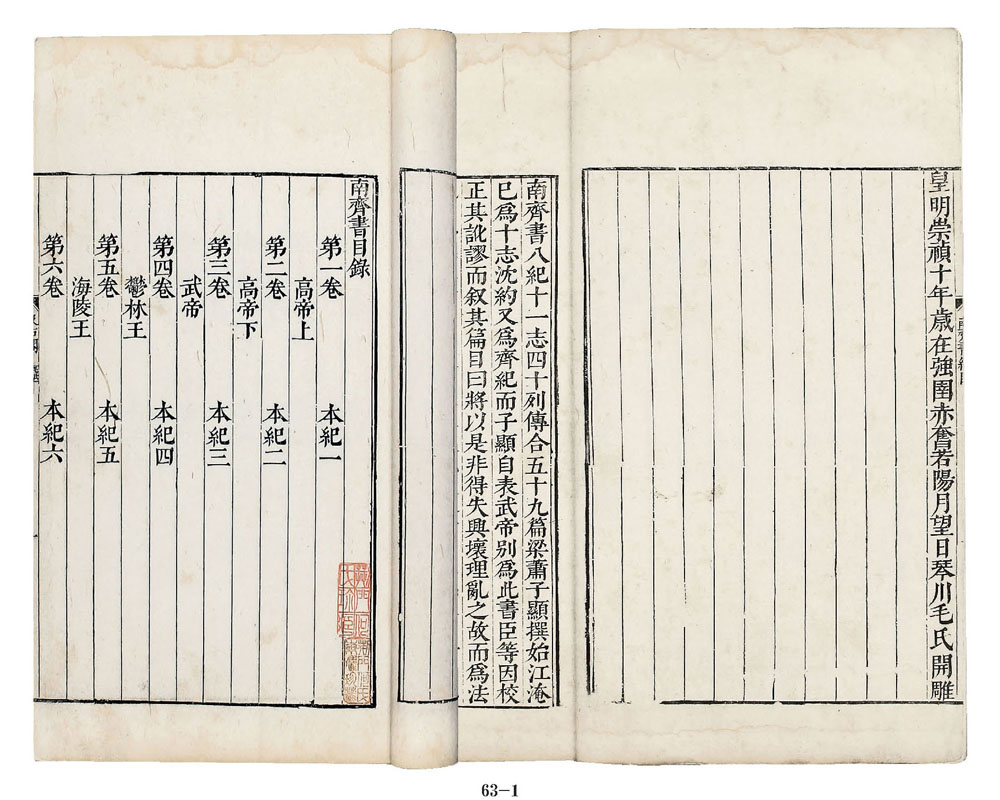 皇明崇禎十年歲在強圉赤奮若陽月望日琴川毛氏開雕
南齊書八紀十一志四十列傳合五十九篇梁蕭子顯撰始江淹
已爲十志沈約又爲齊紀而子顯自表武帝别爲此書臣等因校
正其訛謬而叙其篇目曰將以是非得失興壞理亂之故而爲法
南齊書目錄
第一卷 本紀一
高帝上
第二卷 本紀二
高帝下
第三卷 本紀三
武帝
第四卷 本紀四
鬱林王
第五卷 本紀五
海陵王
第六卷 本紀六
63-1